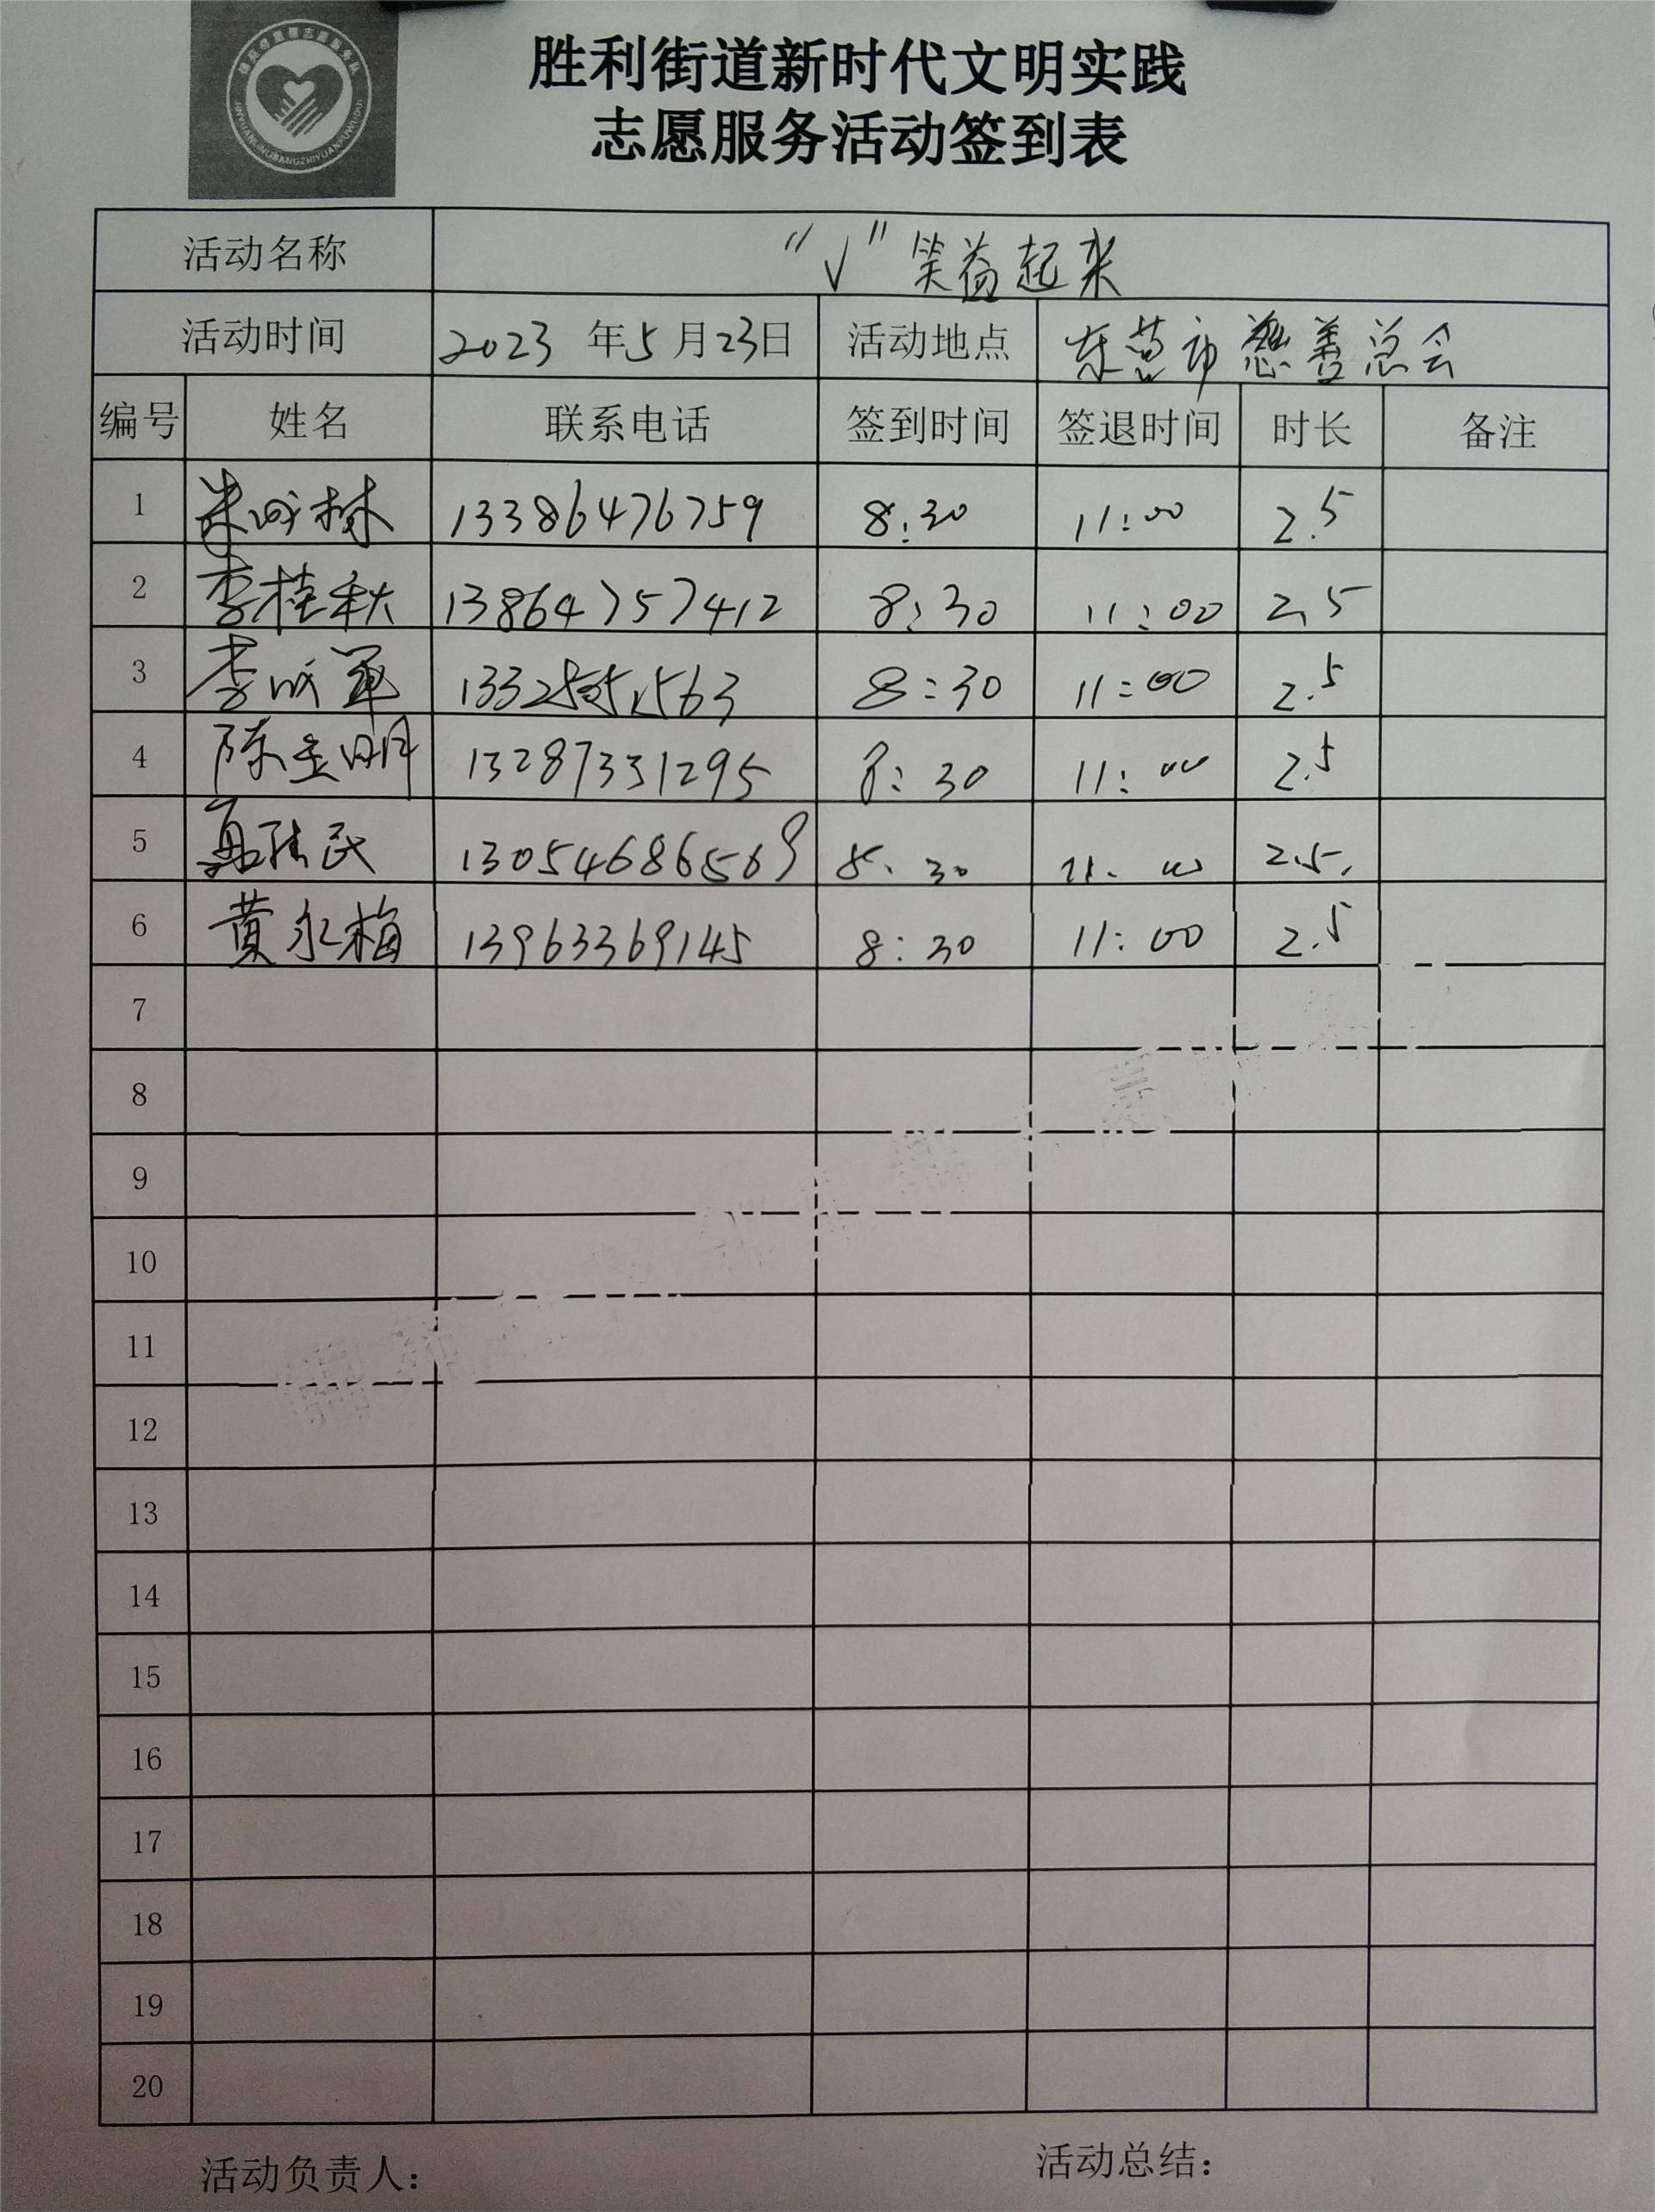 胜利街道新时代文明实践
志愿服务活动签到表
活动名称 “√”笑益起来
活动时间 2023年5月23日 活动地点 东营市慈善总会
编号 姓名 联系电话 签到时间 签退时间 时长 备注
1 13386476759 8:30 11:00 2.5
2 李桂秋 13864757412 8:30 11:00 2.5
3 8:30 11:00 2.5
4 陈金明 13287331295 8:30 11:00 2.5
5 13054686569 8:30 11:00 2.5
6 黄永梅 13963369145 8:30 11:00 2.5
7
8
9
10
11
12
13
14
15
16
17
18
19
20
活动负责人: 活动总结: